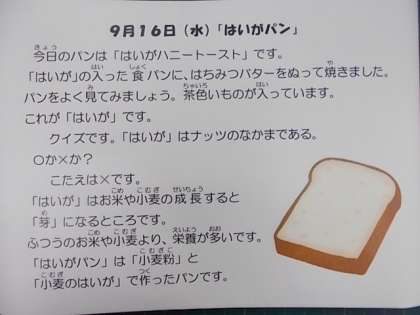 9月16日（水）「はいがパン」
今日のパンは「はいがハニートースト」です。
「はいが」の入った食パンに、はちみつバターをぬって焼きました。
パンをよく見てみましょう。茶色いものが入っています。
これが「はいが」です。
クイズです。「はいが」はナッツのなかまである。
○か×か？
こたえは×です。
「はいが」はお米や小麦の成長すると
「芽」になるところです。
ふつうのお米や小麦より、栄養が多いです。
「はいがパン」は「小麦粉」と
「小麦のはいが」で作ったパンです。